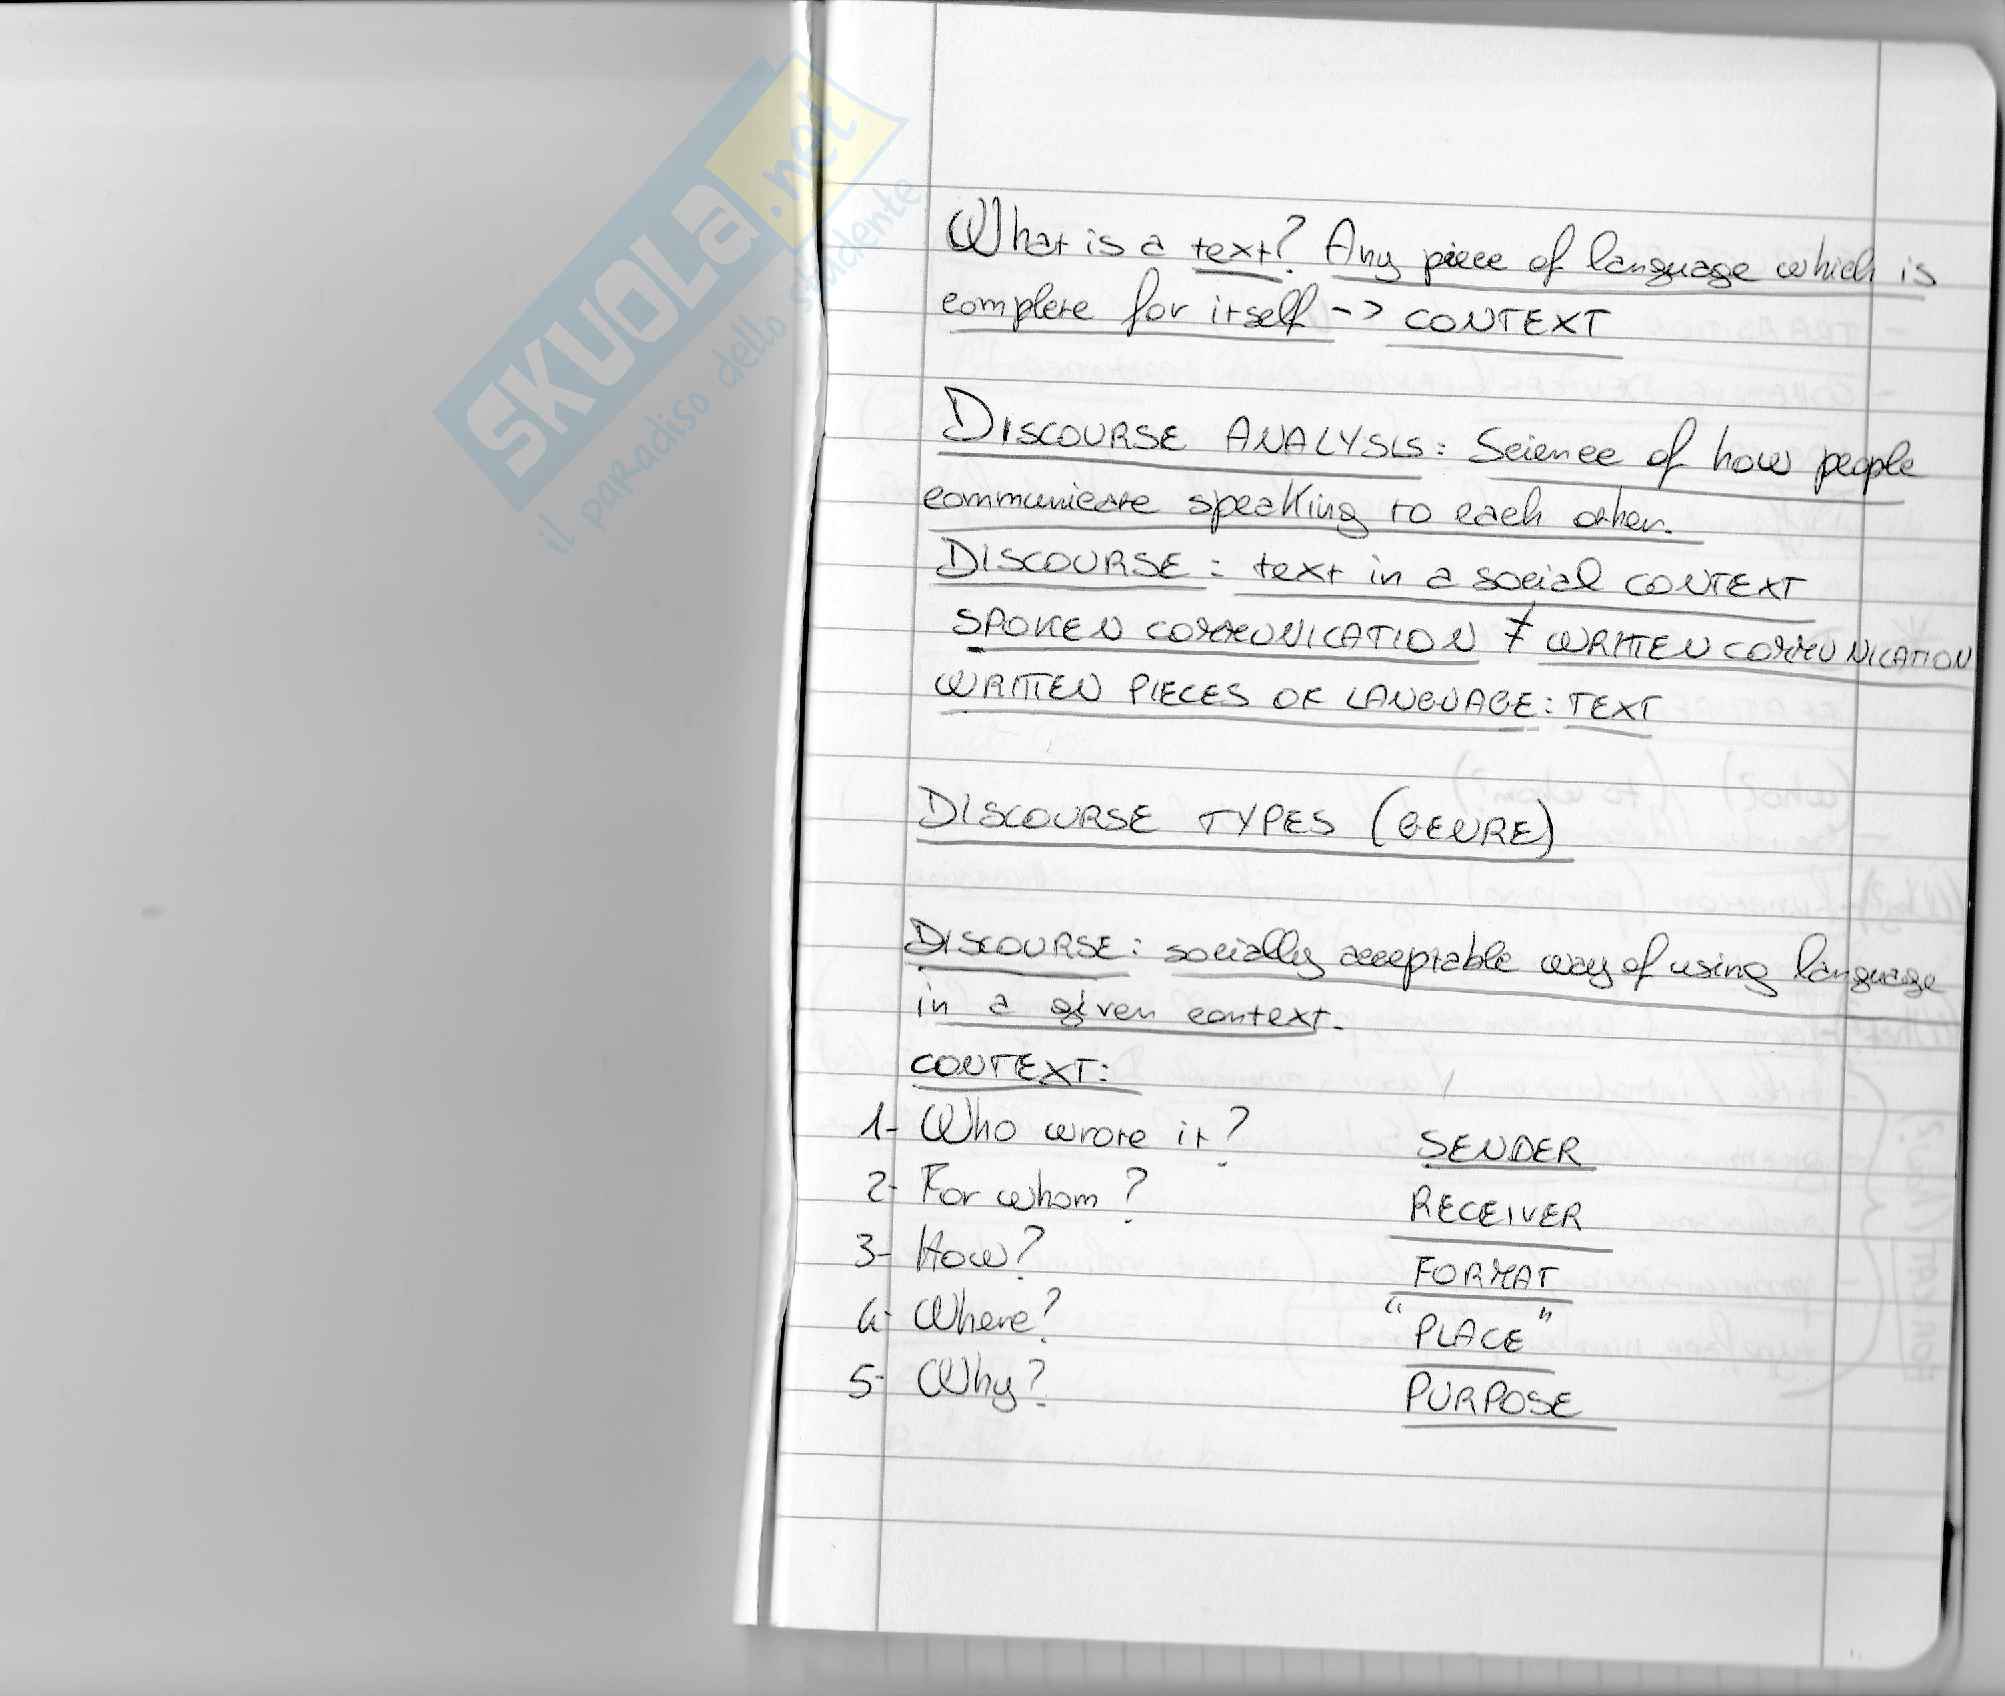 SKUOLA.net
il paradiso dello studente
What is a text? Any piece of language which is
complete for itself -> CONTEXT
DISCOURSE ANALYSIS: Science of how people
communicate speaking to each other.
DISCOURSE: text in a social CONTEXT
SPOKEN COMMUNICATION ≠ WRITTEN COMMUNICATION
WRITTEN PIECES OF LANGUAGE: TEXT
DISCOURSE TYPES (GENRE)
DISCOURSE: socially acceptable way of using language
in a given context.
CONTEXT:
1- Who wrote it? SENDER
2- For whom? RECEIVER
3- How? FORMAT
4- Where? "PLACE"
5- Why? PURPOSE